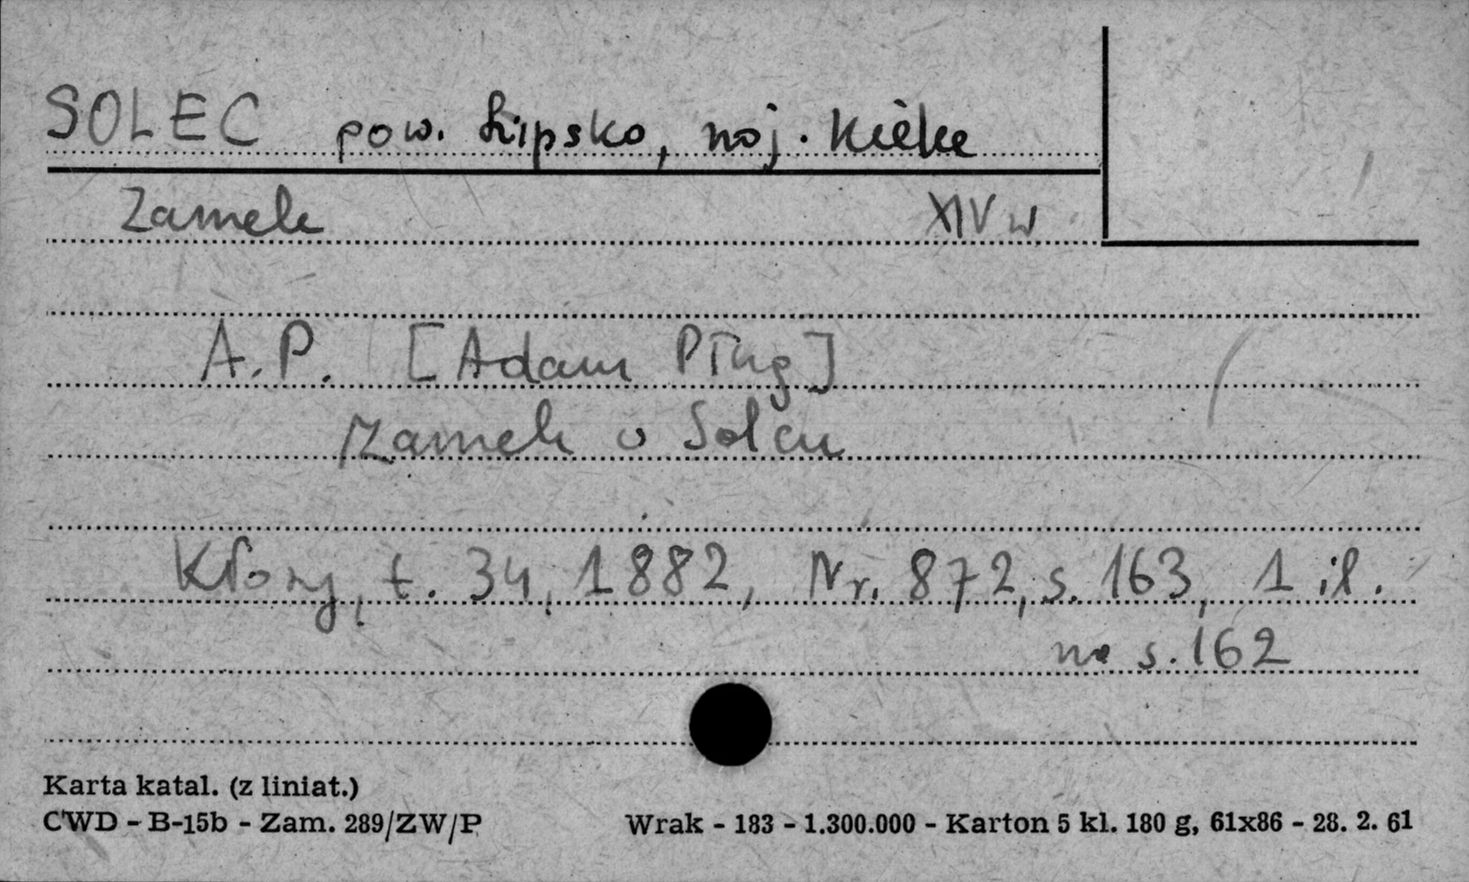 SOLEC pow. Lipsko, woj. Kielce
Zamek XIV w
A.P. [Adam Pług]
Zamek w Solcu
Kłosy, t. 34, 1882, Nr. 872, s. 163, 1 il.
na s. 162
Karta katal. (z liniat.)
CWD - B-15b - Zam. 289/ZW/P Wrak - 183 - 1.300.000 - Karton 5 kl. 180 g, 61x86 - 28. 2. 61